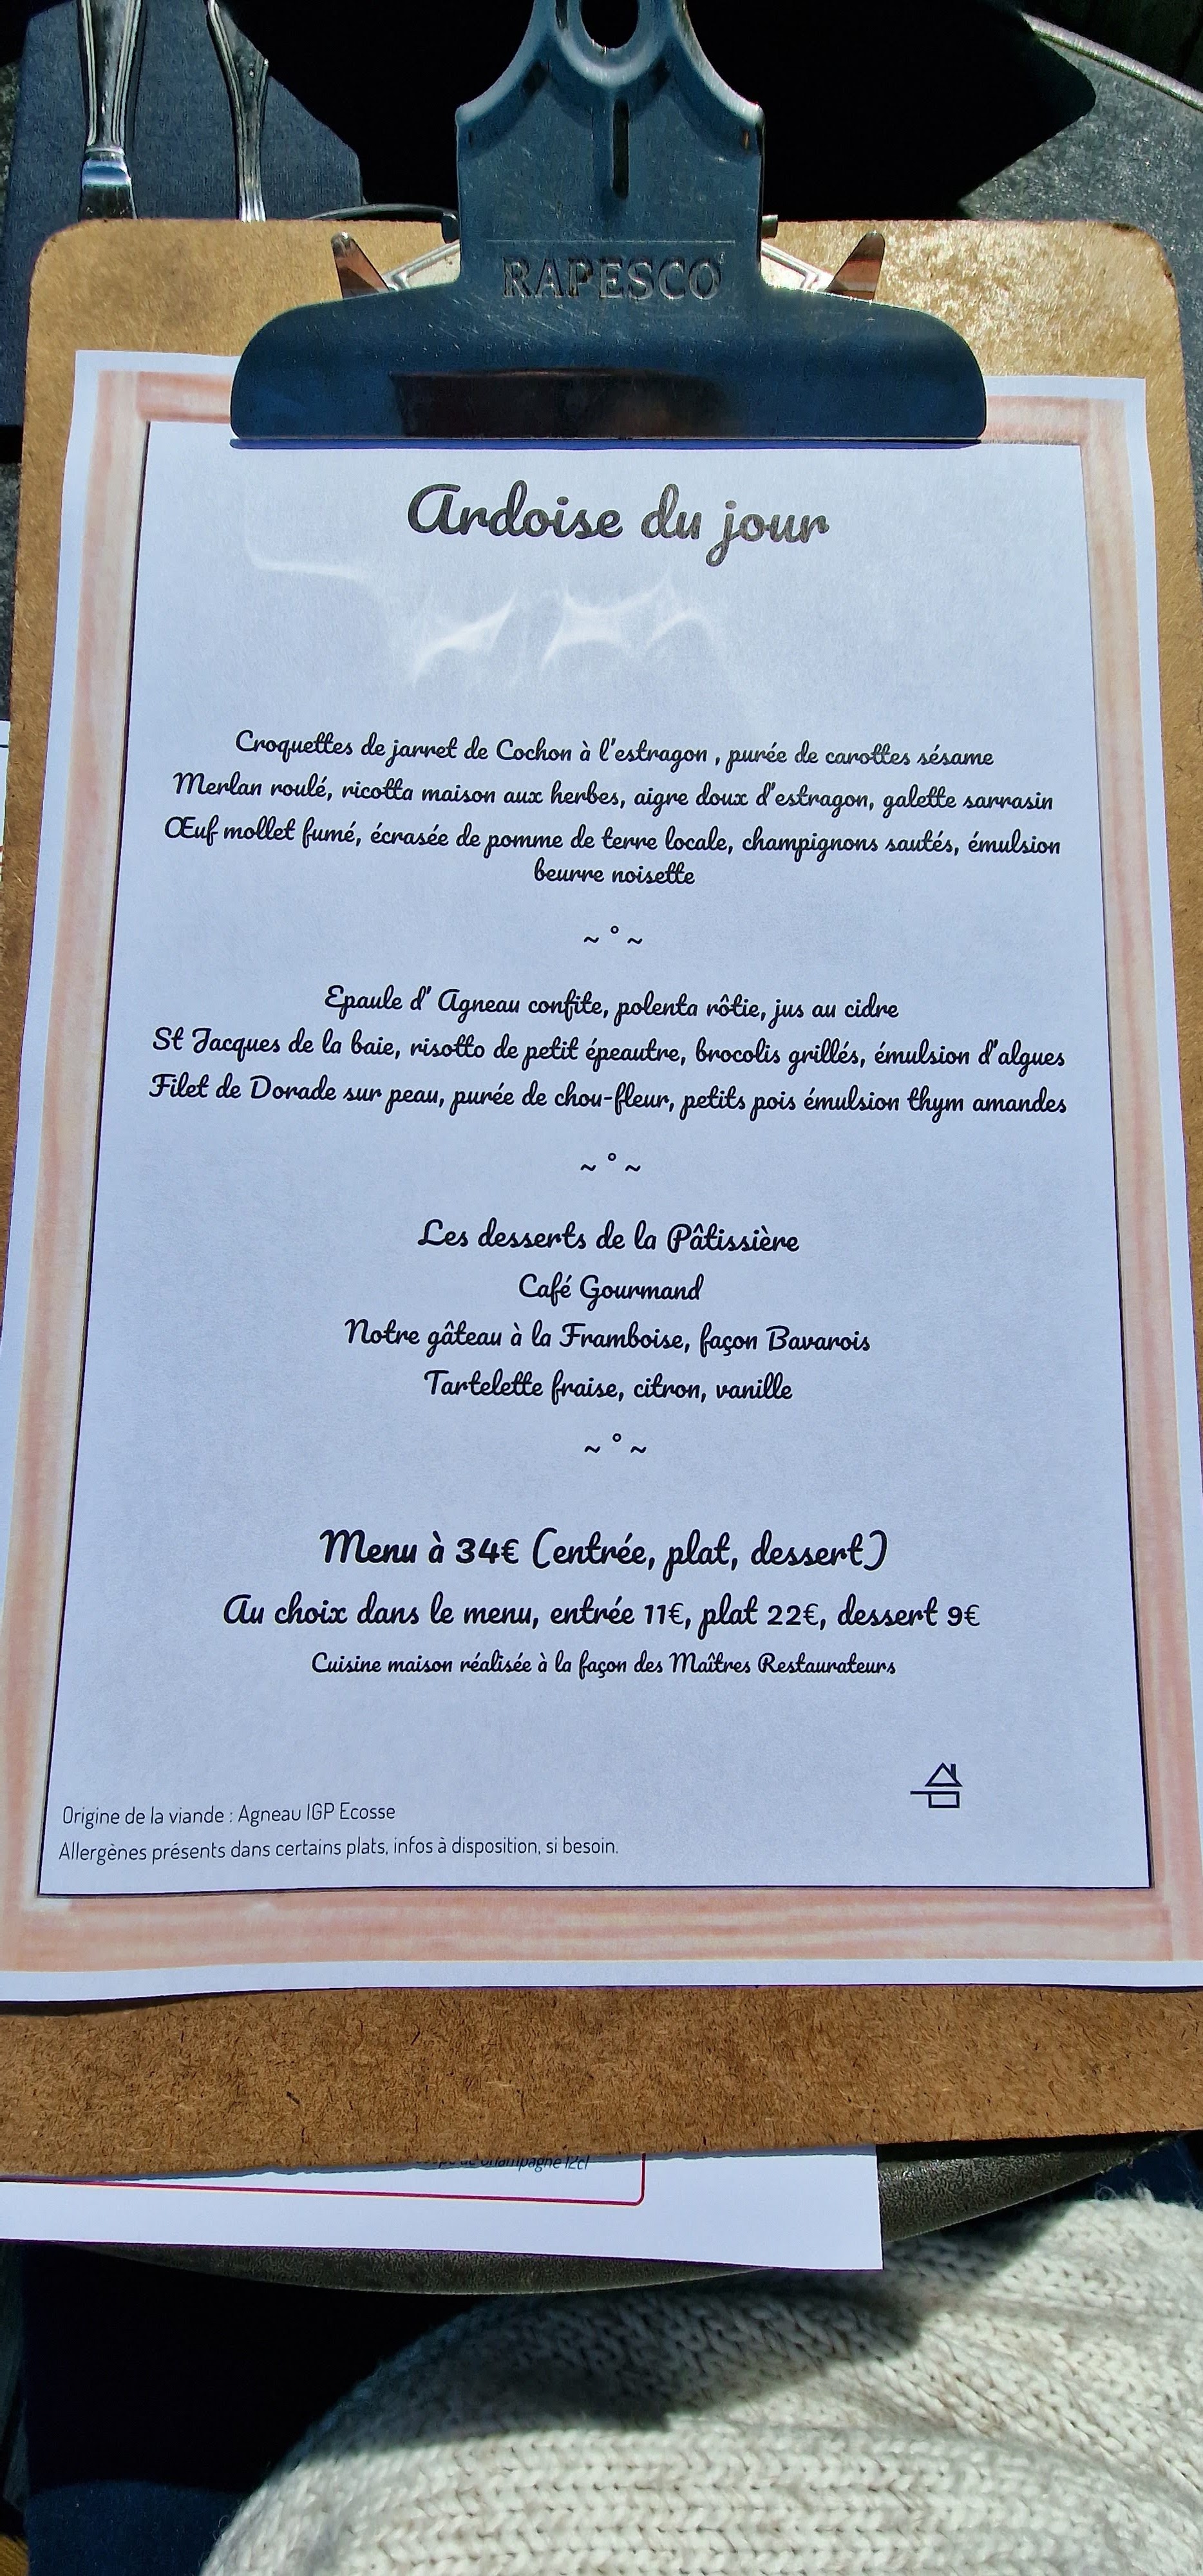 RAPESCO
Ardoise du jour
Croquettes de jarret de Cochon à l'estragon , purée de carottes sésame
Merlan roulé, ricotta maison aux herbes, aigre doux d'estragon, galette sarrasin
Œuf mollet fumé, écrasée de pomme de terre locale, champignons sautés, émulsion
beurre noisette
~ ° ~
Epaule d' Agneau confite, polenta rôtie, jus au cidre
St Jacques de la baie, risotto de petit épeautre, brocolis grillés, émulsion d'algues
Filet de Dorade sur peau, purée de chou-fleur, petits pois émulsion thym amandes
~ ° ~
Les desserts de la Pâtissière
Café Gourmand
Notre gâteau à la Framboise, façon Bavarois
Tartelette fraise, citron, vanille
~ ° ~
Menu à 34€ (entrée, plat, dessert)
Au choix dans le menu, entrée 11€, plat 22€, dessert 9€
Cuisine maison réalisée à la façon des Maîtres Restaurateurs
Origine de la viande : Agneau IGP Ecosse
Allergènes présents dans certains plats, infos à disposition, si besoin.
Champagne 12cl